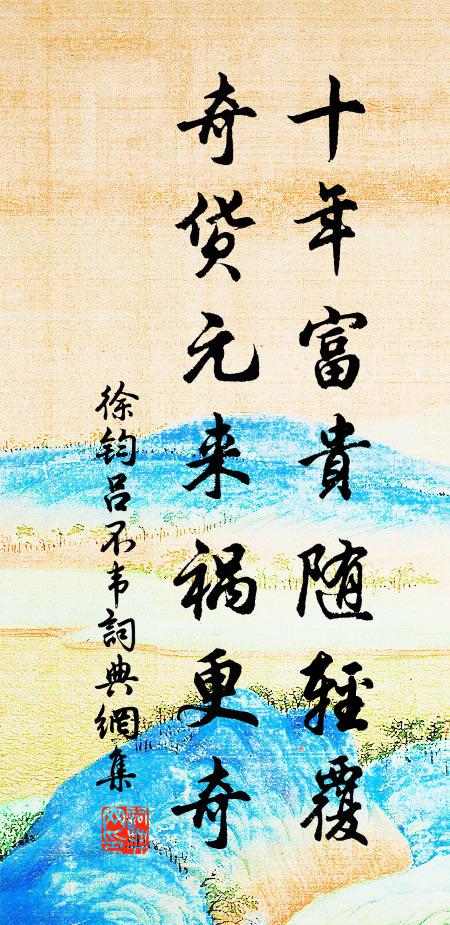 十年富貴随輕覆
奇货元来禍更奇
徐鈞吕不韦詞典網集